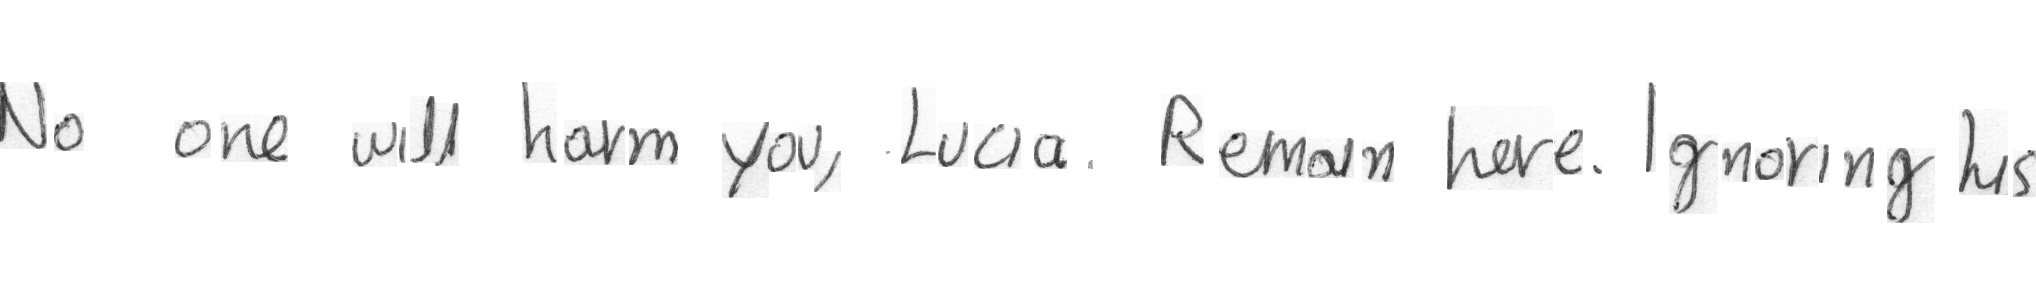 No one will harm you, Lucia. Remain here. Ignoring his